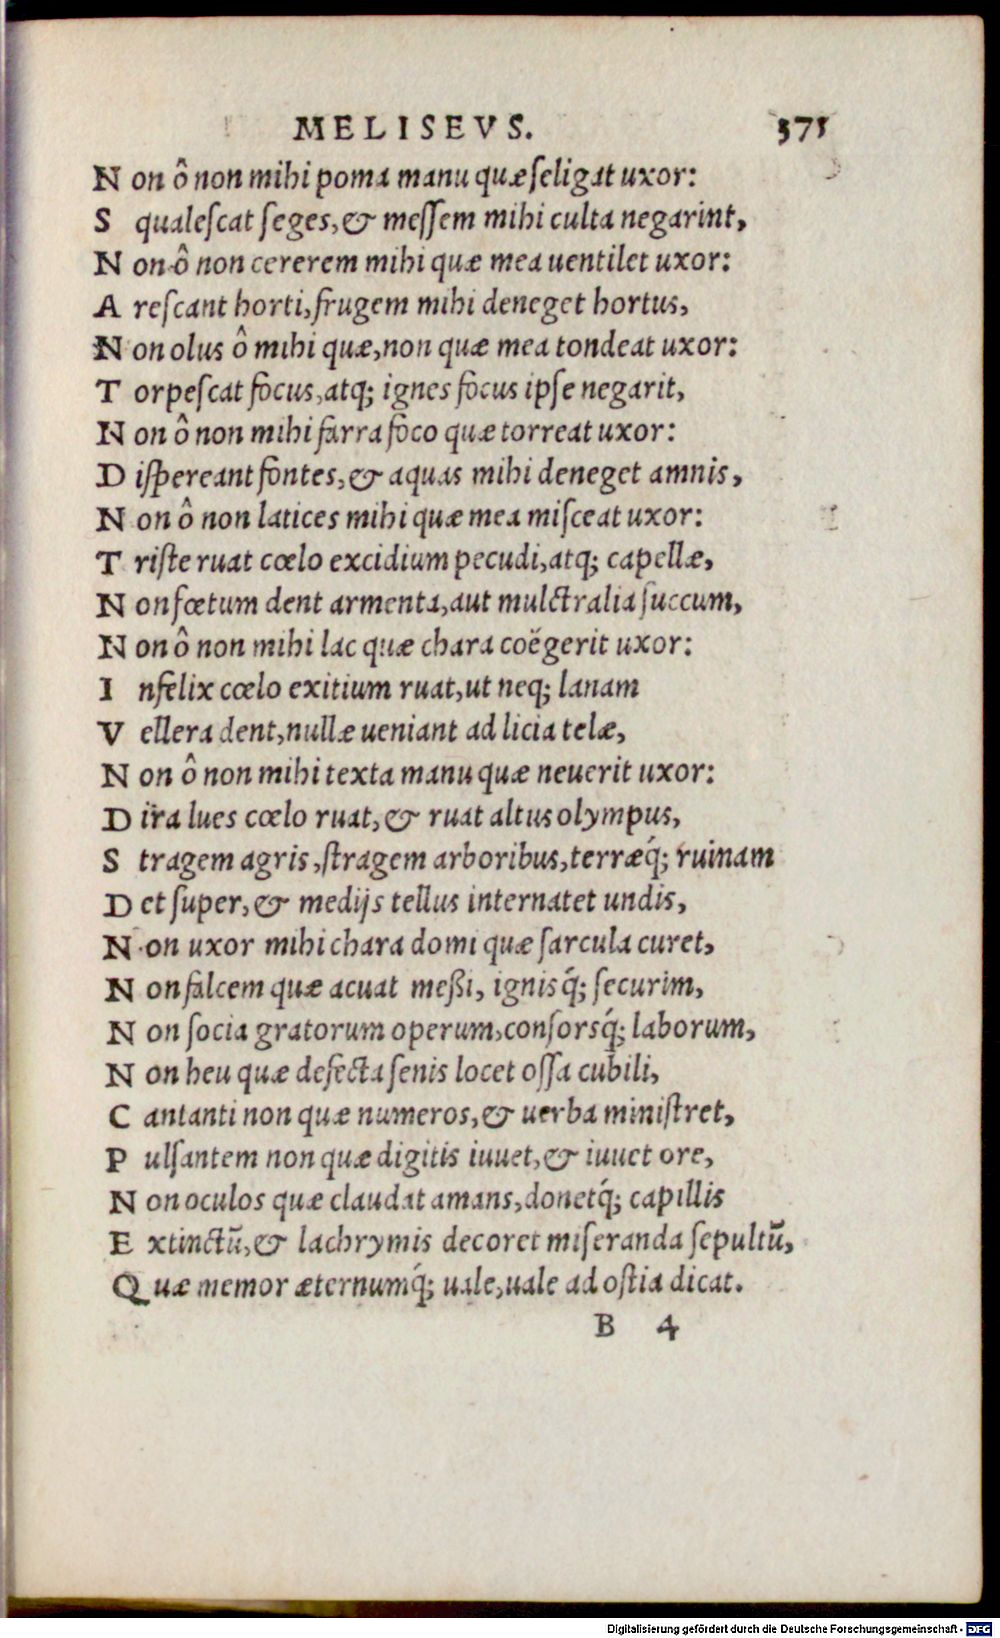 MELISEVS. 371
Non ô non mihi poma manu quæ seligat uxor:
Squalescat seges, & messem mihi culta negarint,
Non ô non cererem mihi quæ mea uentilet uxor:
Arescant horti, frugem mihi deneget hortus,
Non olus ô mihi quæ, non quæ mea tondeat uxor:
Torpescat focus, atq; ignes focus ipse negarit,
Non ô non mihi farra foco quæ torreat uxor:
Dispereant fontes, & aquas mihi deneget amnis,
Non ô non latices mihi quæ mea misceat uxor:
Triste ruat cœlo excidium pecudi, atq; capellæ,
Non fœtum dent armenta, aut mulctralia succum,
Non ô non mihi lac quæ chara coëgerit uxor:
Infelix cœlo exitium ruat, ut neq; lanam
Vellera dent, nullæ ueniant ad licia telæ,
Non ô non mihi texta manu quæ neuerit uxor:
Dira lues cœlo ruat, & ruat altus olympus,
Stragem agris, stragem arboribus, terræq́; ruinam
Det super, & medijs tellus internatet undis,
Non uxor mihi chara domi quæ sarcula curet,
Non falcem quæ acuat meßi, ignisq́; securim,
Non socia gratorum operum, consorsq́; laborum,
Non heu quæ defecta senis locet ossa cubili,
Cantanti non quæ numeros, & uerba ministret,
Pulsantem non quæ digitis iuuet, & iuuet ore,
Non oculos quæ claudat amans, donetq́; capillis
Extinctũ, & lachrymis decoret miseranda sepultũ,
Quæ memor æternumq́; uale, uale ad ostia dicat.
B 4
Digitalisierung gefördert durch die Deutsche Forschungsgemeinschaft - DFG